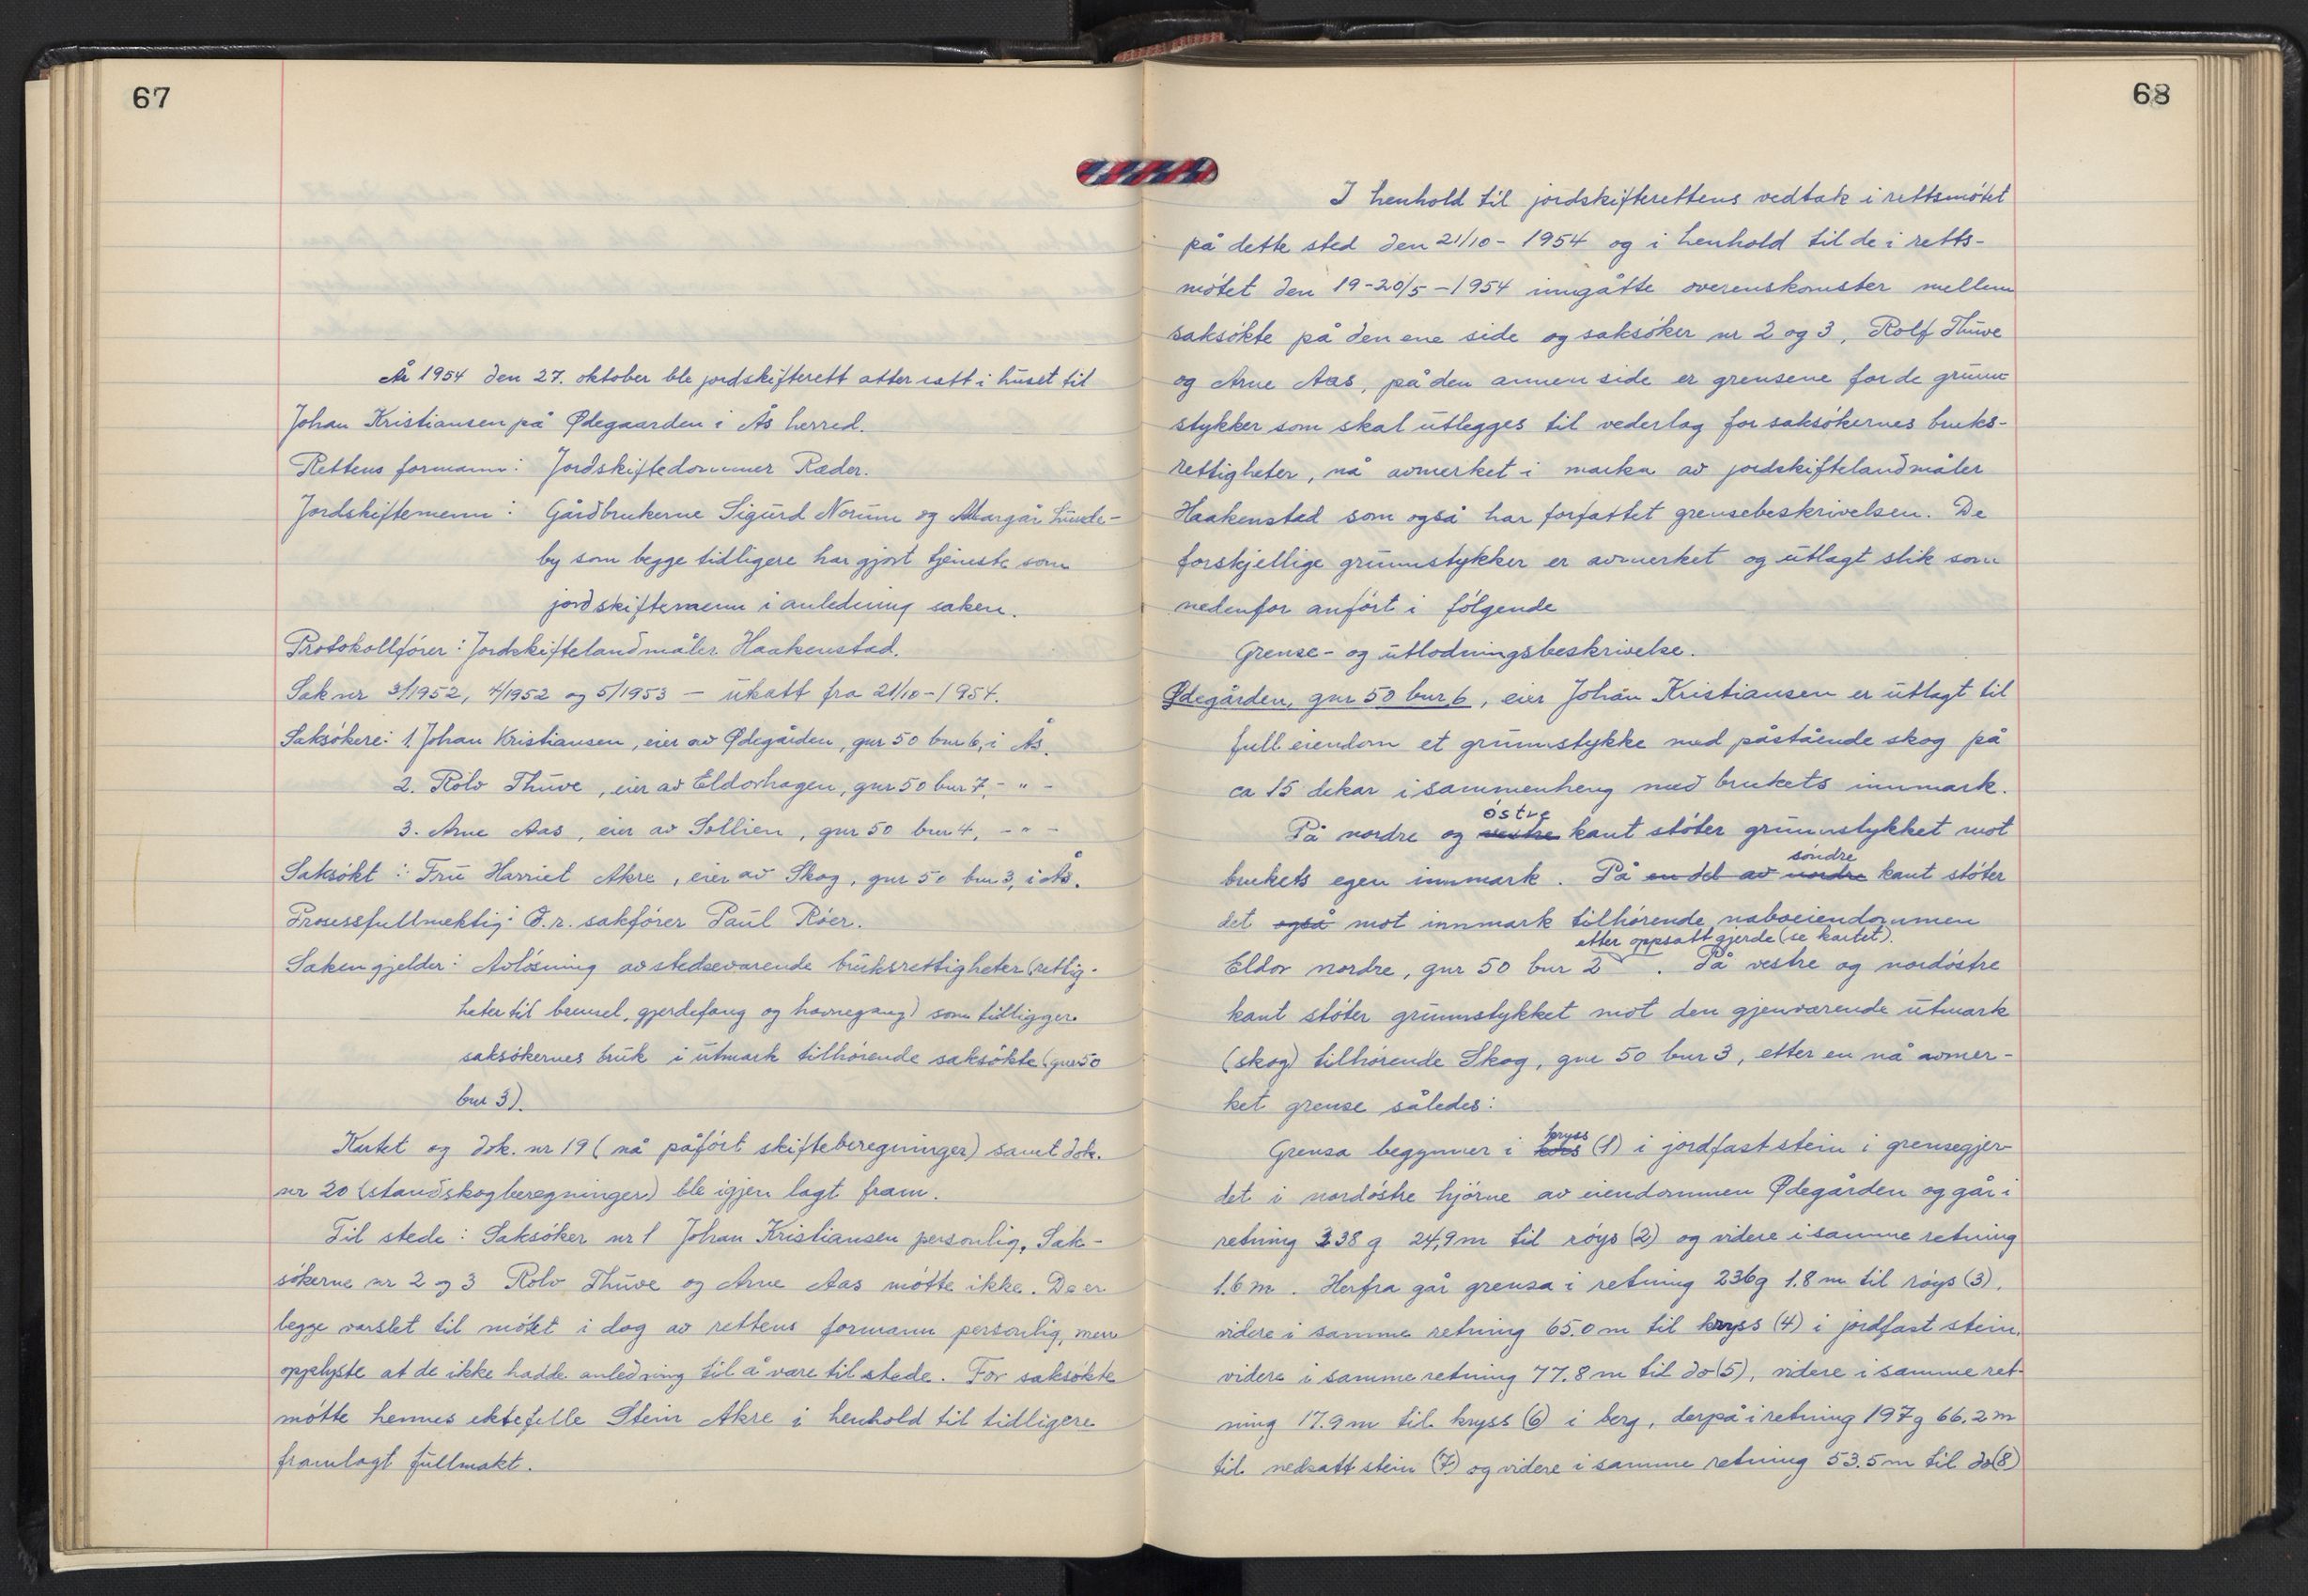 67
År 1954 den 27. oktober ble jordskifterett atter satt i huset til
Johan Kristiansen på Ødegaarden i Ås herred.
Rettens formann: Jordskiftedommer Ræder.
Jordskiftemenn: Gårdbrukerne Sigurd Norum og Margår Lunde-
by som begge tidligere har gjort tjeneste som
jordskiftemenn i anledning saken.
Protokollfører: Jordskiftelandmåler Haakenstad.
Sak nr 3/1952, 4/1952 og 5/1953 – utsatt fra 21/10-1954.
Saksøkere: 1. Johan Kristiansen, eier av Ødegården, gnr 50 bnr 6, i Ås.
2. Rolv Thuve, eier av Eldorhagen, gnr 50 bnr 7, - " -
3. Arne Aas, eier av Sollien, gnr 50 bnr 4, - " -
Saksøkt: Fru Harriet Akre, eier av Skog, gnr 50 bnr 3, i Ås.
Prosessfullmektig: O.r. sakfører Paul Röer.
Saken gjelder: Avløsning av stedsevarende bruksrettigheter (rettig-
heter til brensel, gjerdefang og havnegang) som tilligger
saksøkernes bruk i utmark tilhørende saksøkte (gnr 50
bnr 3).
Kartet og dok. nr 19 (nå påført skifteberegninger) samt dok.
nr 20 (standskogberegninger) ble igjen lagt fram.
Til stede: Saksøker nr 1 Johan Kristiansen personlig. Sak-
søkerne nr 2 og 3 Rolv Thuve og Arne Aas møtte ikke. De er
begge varslet til møtet i dag av rettens formann personlig, men
opplyste at de ikke hadde anledning til å være til stede. For saksøkte
møtte hennes ektefelle Stein Akre i henhold til tidligere
framlagt fullmakt.
68
I henhold til jordskifterettens vedtak i rettsmøtet
på dette sted den 21/10-1954 og i henhold til de i retts-
møtet den 19-20/5-1954 inngåtte overenskomster mellem
saksøkte på den ene side og saksøker nr 2 og 3, Rolf Thuve
og Arne Aas, på den annen side er grensene for de grunn-
stykker som skal utlegges til vederlag for saksøkernes bruks-
rettigheter, nå avmerket i marka av jordskiftelandmåler
Haakenstad som også har forfattet grensebeskrivelsen. De
forskjellige grunnstykker er avmerket og utlagt slik som
nedenfor anført i følgende
Grense- og utlodningsbeskrivelse.
Ødegården, gnr 50 bnr 6, eier Johan Kristiansen er utlagt til
full eiendom et grunnstykke med påstående skog på
ca 15 dekar i sammenheng med brukets innmark.
østre
På nordre og vestre kant støter grunnstykket mot
søndre
brukets egen innmark. På en del av nordre kant støter
det også mot innmark tilhørende naboeiendommen
etter oppsatt gjerde (se kartet).
Eldor nordre, gnr 50 bnr 2. På vestre og nordøstre
kant støter grunnstykket mot den gjenværende utmark
(skog) tilhørende Skog, gnr 50 bnr 3, etter en nå avmer-
ket grense således:
kryss
Grensa begynner i kors (1) i jordfast stein i grensegjer-
det i nordøstre hjørne av eiendommen Ødegården og går i
retning 338 g 24,9 m til røys (2) og videre i samme retning
1.6 m. Herfra går grensa i retning 236g 1.8 m til røys (3),
videre i samme retning 65.0 m til kryss (4) i jordfast stein,
videre i samme retning 77.8 m til do (5), videre i samme ret-
ning 17.9 m til kryss (6) i berg, derpå i retning 197g 66.2 m
til nedsatt stein (7) og videre i samme retning 53.5 m til do (8)